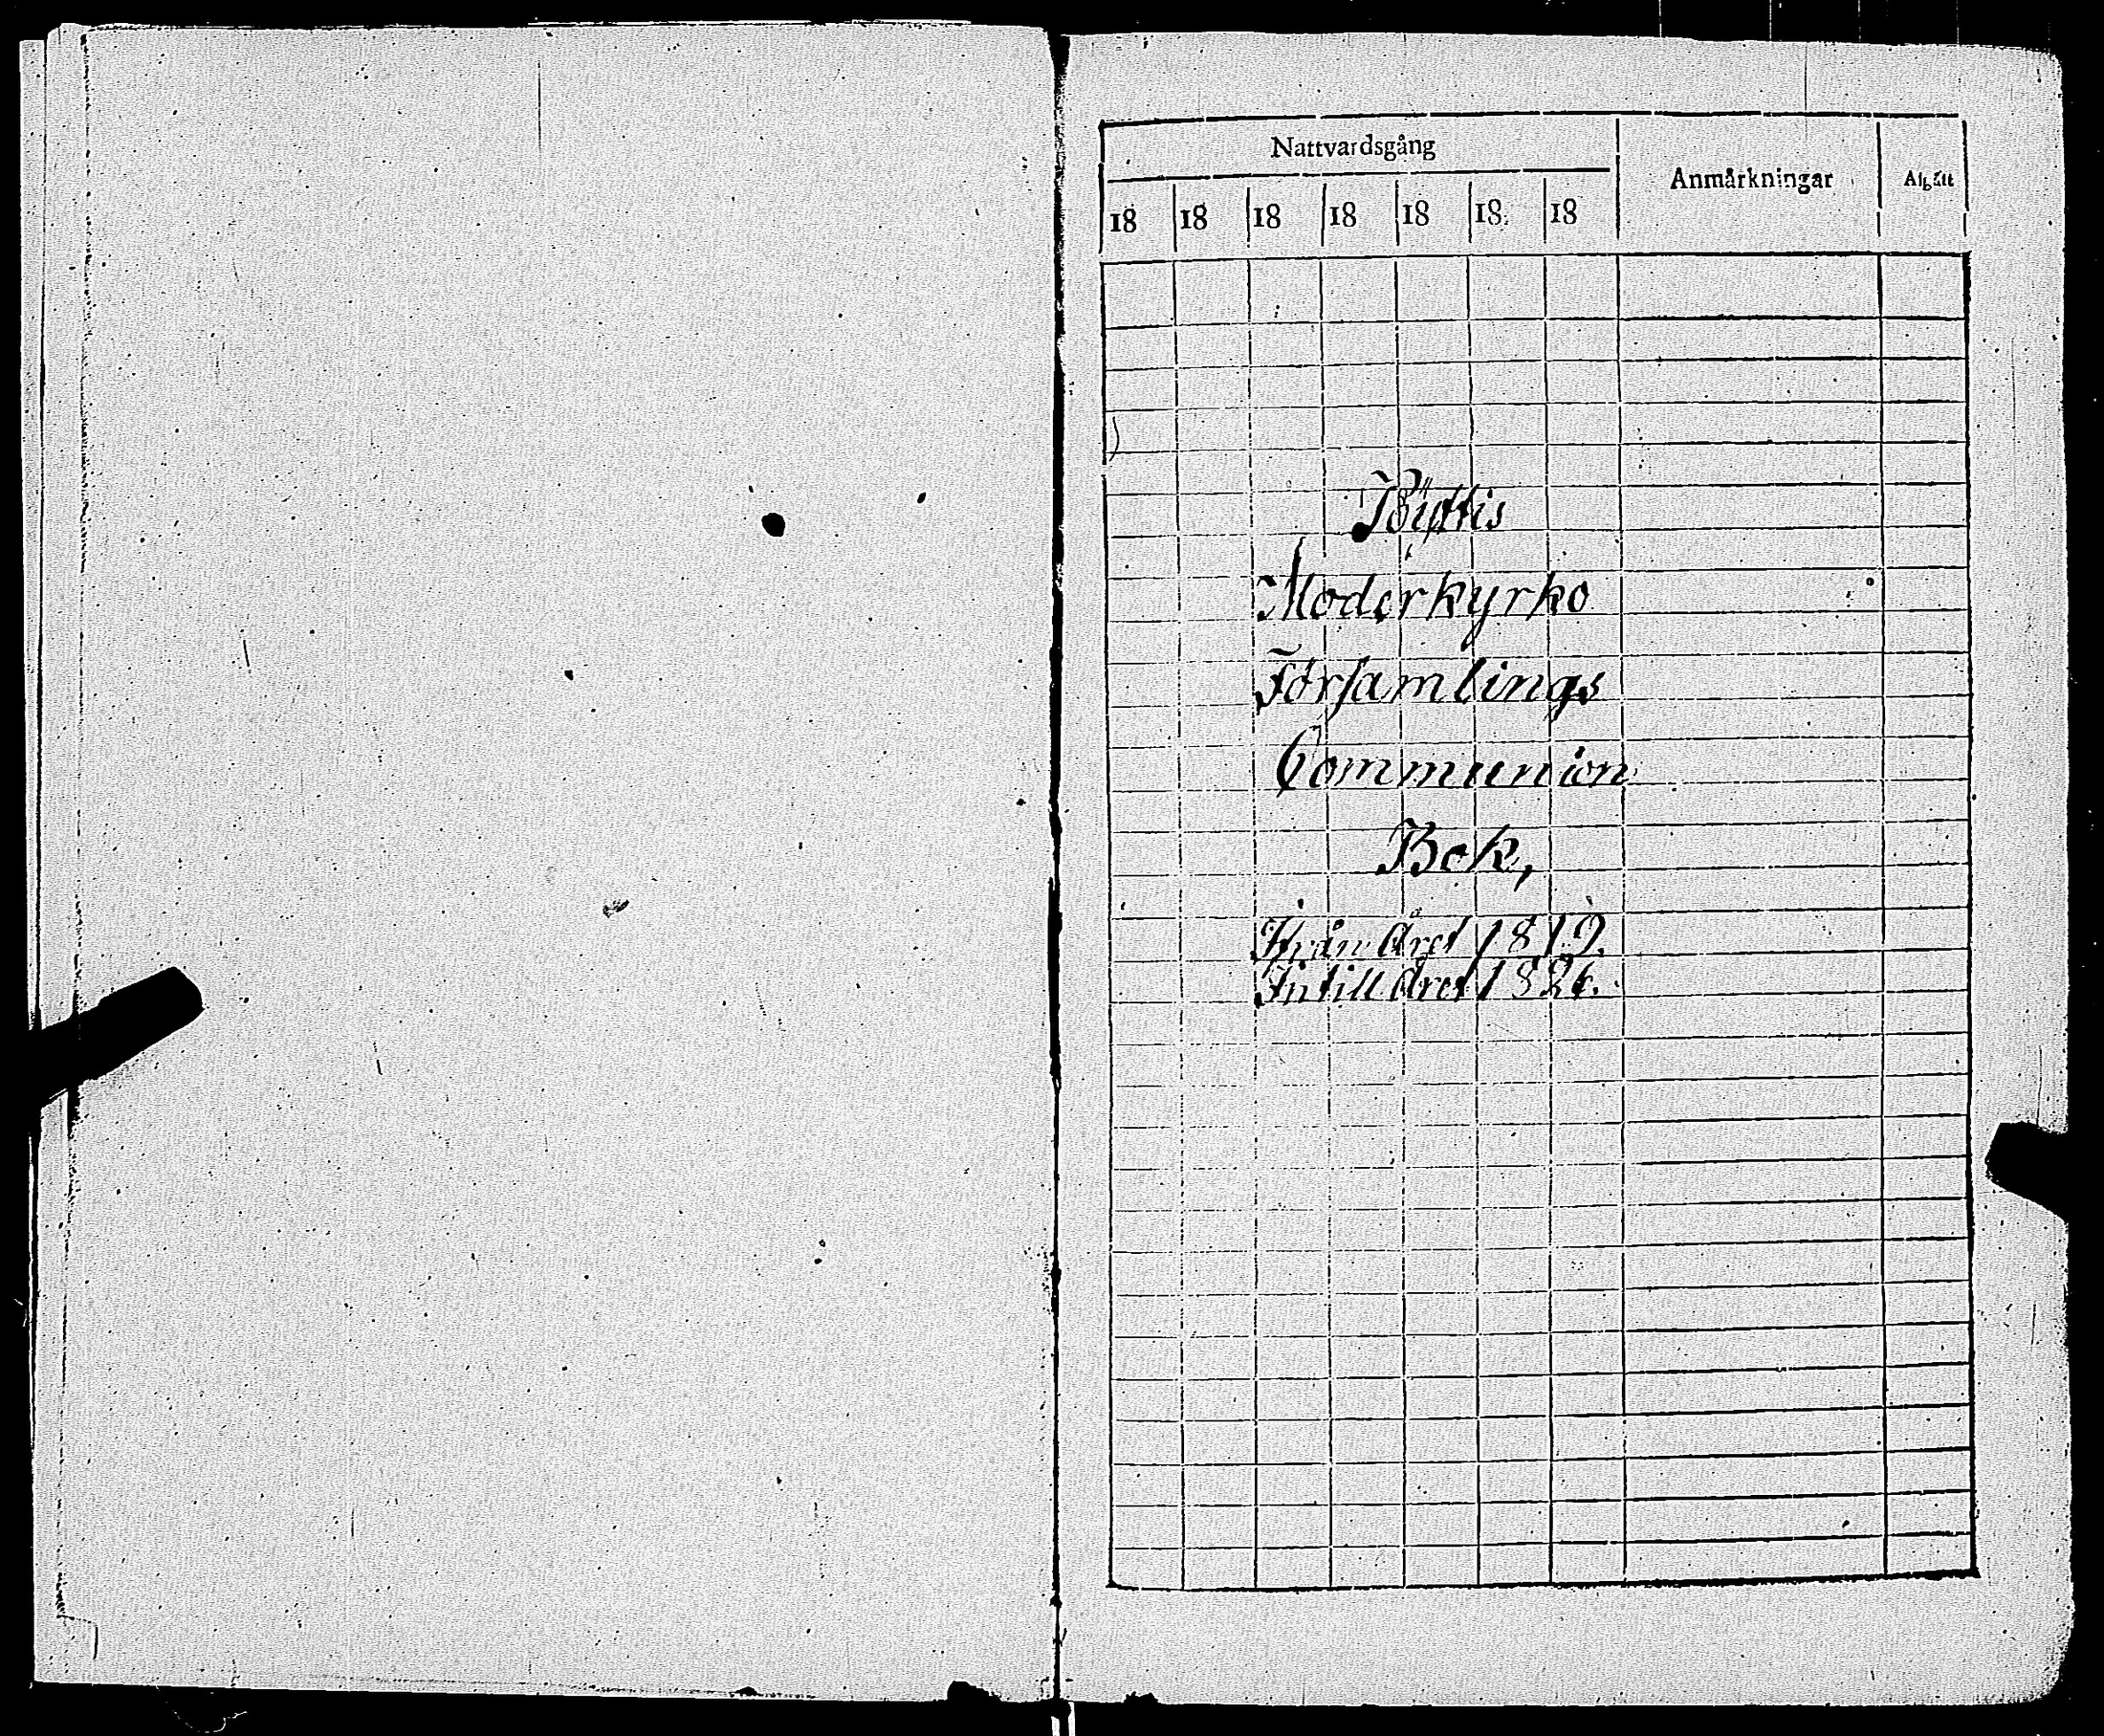 Nattvardsgång
Anmårkningar
18 18 18 18 18 18 18
Pyttis
Moderkyrko
Församlings
Communion
Bok,
Ifrån året 1819.
Intill året 1826.